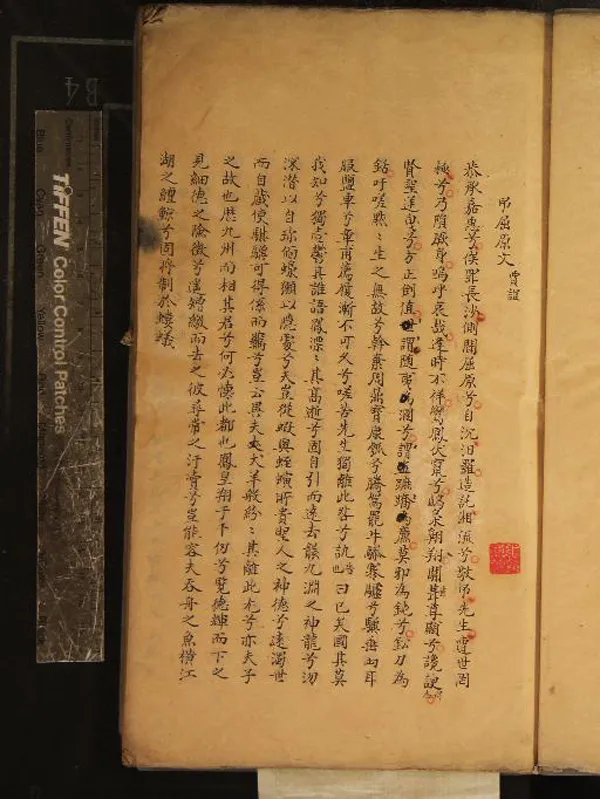 弔屈原文 賈誼
恭承嘉惠兮俟罪長沙側聞屈原兮自沉汨羅造託湘流兮敬弔先生遭世罔
極兮乃隕厥身嗚呼哀哉逢時不祥鸞鳳伏竄兮鴟梟翱翔闒茸尊顯兮讒諛
賢聖逆曳兮方正倒值世謂隨夷為溷兮謂蹠蹻為廉莫邪為鈍兮鉛刀為
銛吁嗟默〻生之無故兮斡棄周鼎寶康瓠兮騰駕罷牛驂蹇驢兮驥垂兩耳
服鹽車兮章甫薦履漸不可久兮嗟苦先生獨離此咎兮訊曰已矣國其莫
我知兮獨壹鬱其誰語鳳漂〻其高逝兮固自引而遠去襲九淵之神龍兮沕
深潛以自珍偭蟂獺以隱處兮夫豈從蝦與蛭螾所貴聖人之神德兮遠濁世
而自藏使騏驥可得係而羈兮豈云異夫犬羊般紛〻其離此尤兮亦夫子
之故也歷九州而相其君兮何必懷此都也鳳皇翔于千仞兮覽德輝而下之
見細德之險徵兮遙增繳而去之彼尋常之汙瀆兮豈能容夫吞舟之魚橫江
湖之鱣鯨兮固將制於螻蟻
B4
TIFFEN Color Control Patches
Centimetres
Blue
Cyan
Green
Yellow
Red